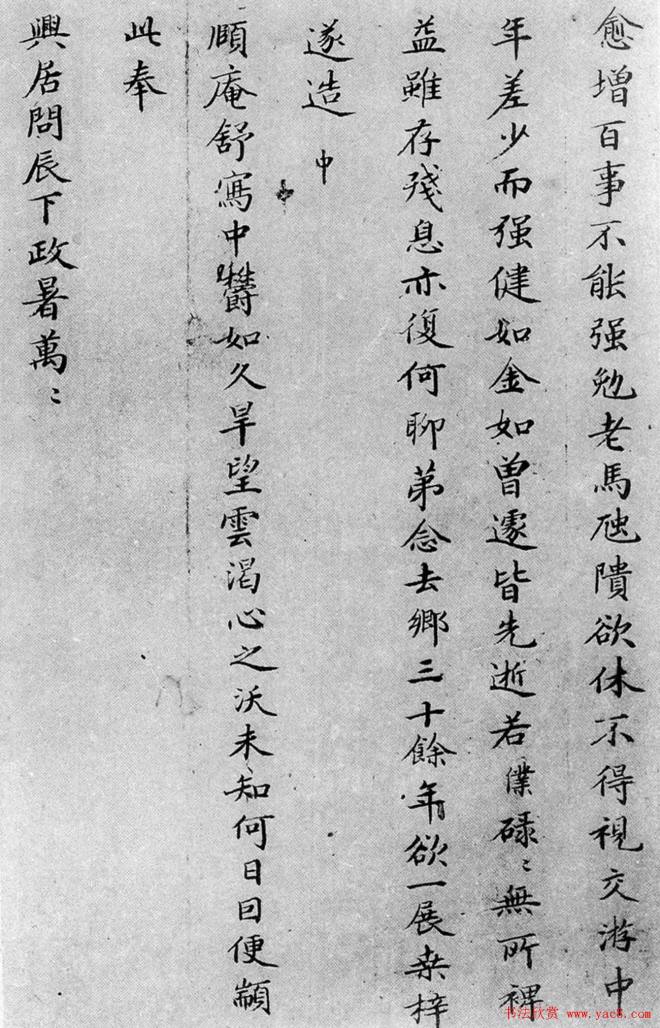 愈增百事不能强勉老馬虺隤欲休不得視交游中
年差少而强健如金如曾遽皆先逝若僕碌〻無所裨
益雖存殘息亦復何聊第念去鄉三十餘年欲一展桒梓
遂造中
順庵舒寫中欝如久旱望雲渴心之沃未知何日因便顓
此奉
興居問辰下政暑萬〻
书法欣赏 www.yac8.com